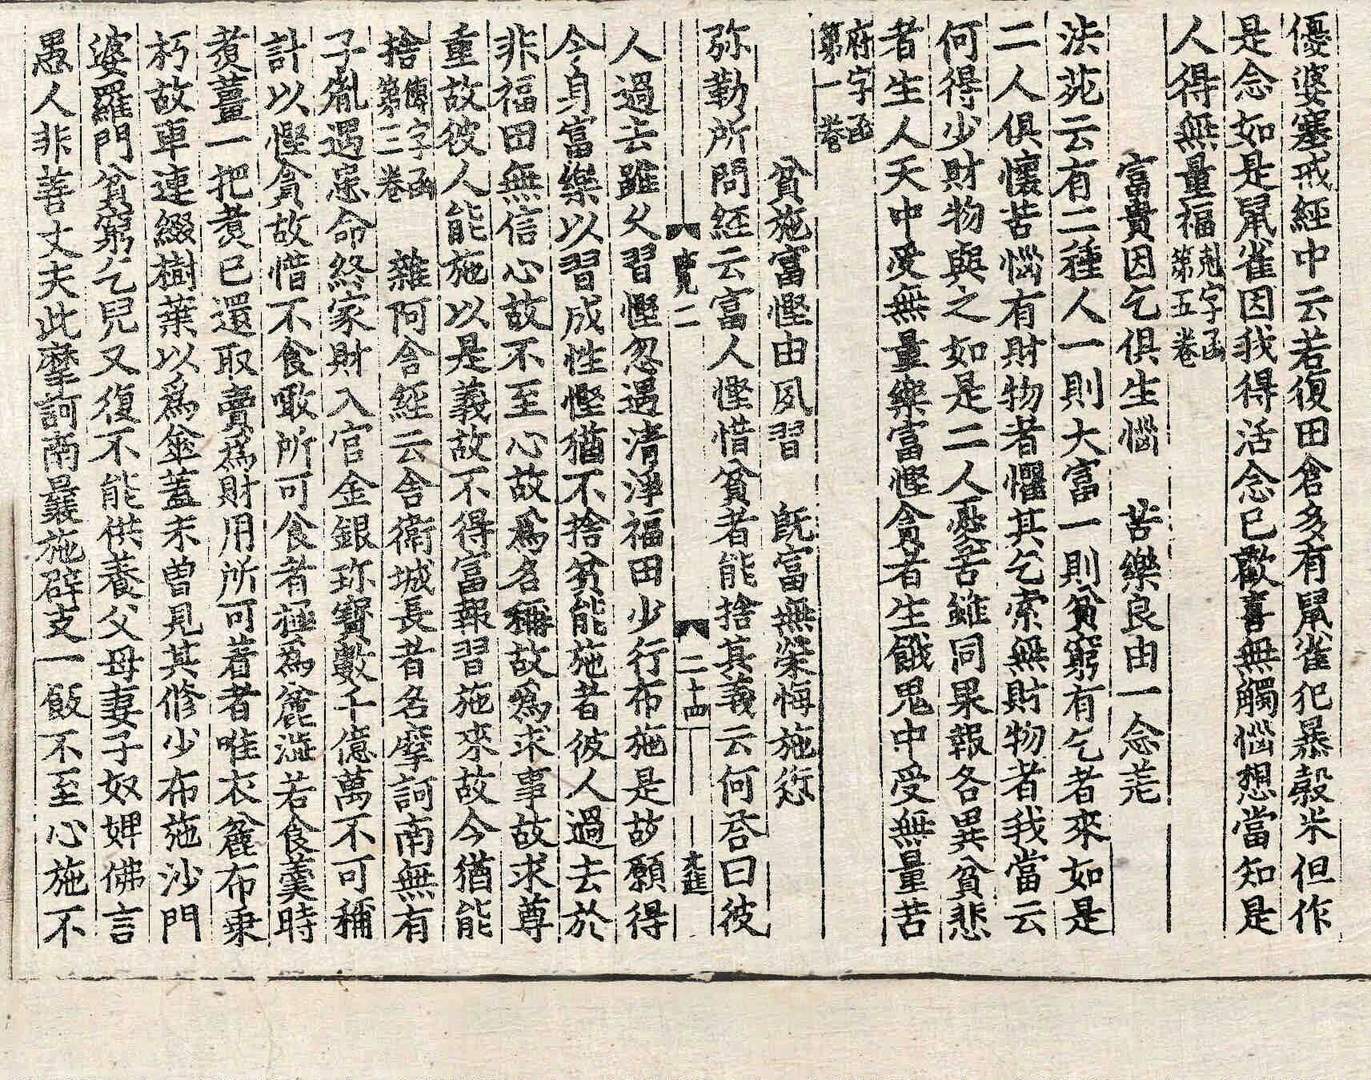 優婆塞戒經中云若復田倉多有鼠雀犯暴穀米但作
是念如是鼠雀因我得活念已歡喜無觸惱想當知是
人得無量福剋字函第五卷
富貴因乞俱生惱　苦樂良由一念差
法苑云有二種人一則大富一則貧窮有乞者來如是
二人俱懷苦惱有財物者懼其乞索無財物者我當云
何得少財物與之如是二人憂苦雖同果報各異貧悲
者生人天中受無量樂富慳貪者生餓鬼中受無量苦
府字函第一卷
貧施富慳由夙習　既富無榮悔施愆
弥勒所問經云富人慳惜貧者能捨其義云何荅曰彼
覽二　二十四
人過去雖久習慳忽遇清淨福田少行布施是故願得
今身富樂以習成性慳猶不捨貧能施者彼人過去於
非福田無信心故不至心故爲名稱故爲求事故求尊
重故彼人能施以是義故不得富報習施來故今猶能
捨傅字函第三卷　雜阿含經云舍衛城長者名摩訶南無有
子胤遇患命終家財入官金銀珎寶數千億萬不可稱
計以慳貪故惜不食噉所可食者極爲麁澁若食羹時
煑薑一把煑已還取賣爲財用所可著者唯衣麁布乗
朽故車連綴樹葉以爲傘蓋未曾見其修少布施沙門
婆羅門貧窮乞兒又復不能供養父母妻子奴婢佛言
愚人非善丈夫此摩訶南曩施辟支一飯不至心施不